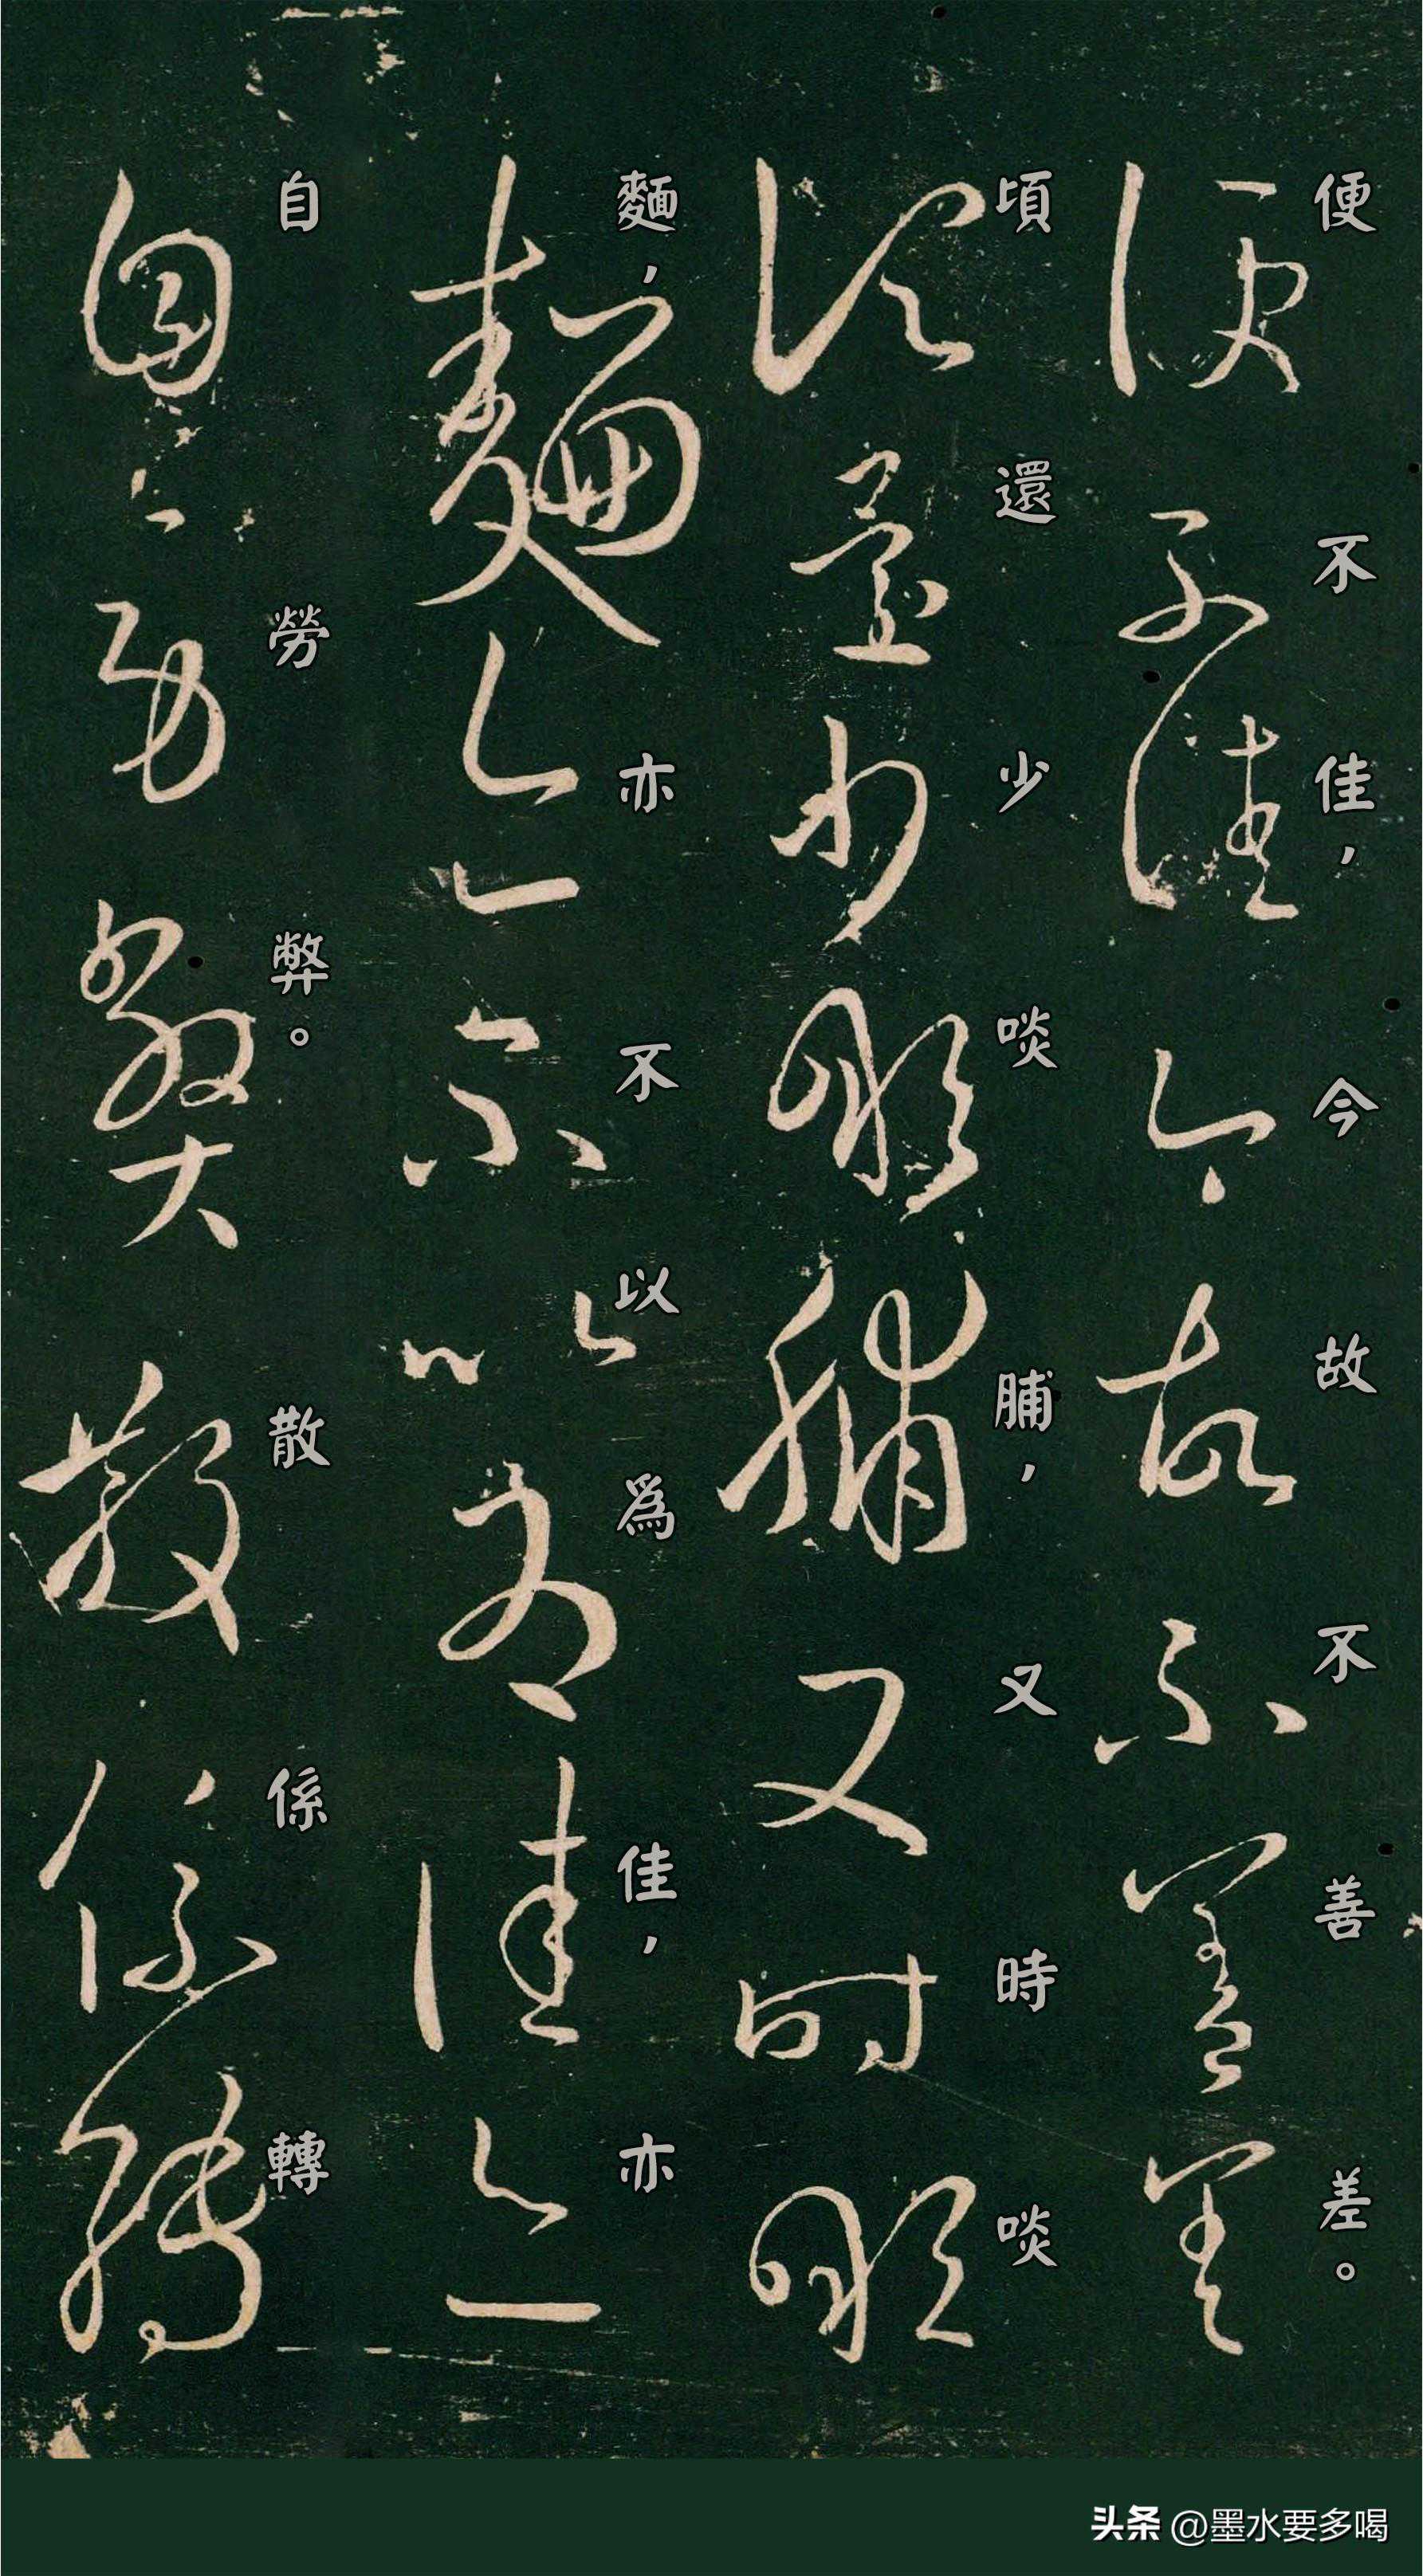 便不佳，今故不善差。
頃還少啖脯，又時啖
麵，亦不以爲佳，亦
自勞弊。散係轉
头条 @墨水要多喝